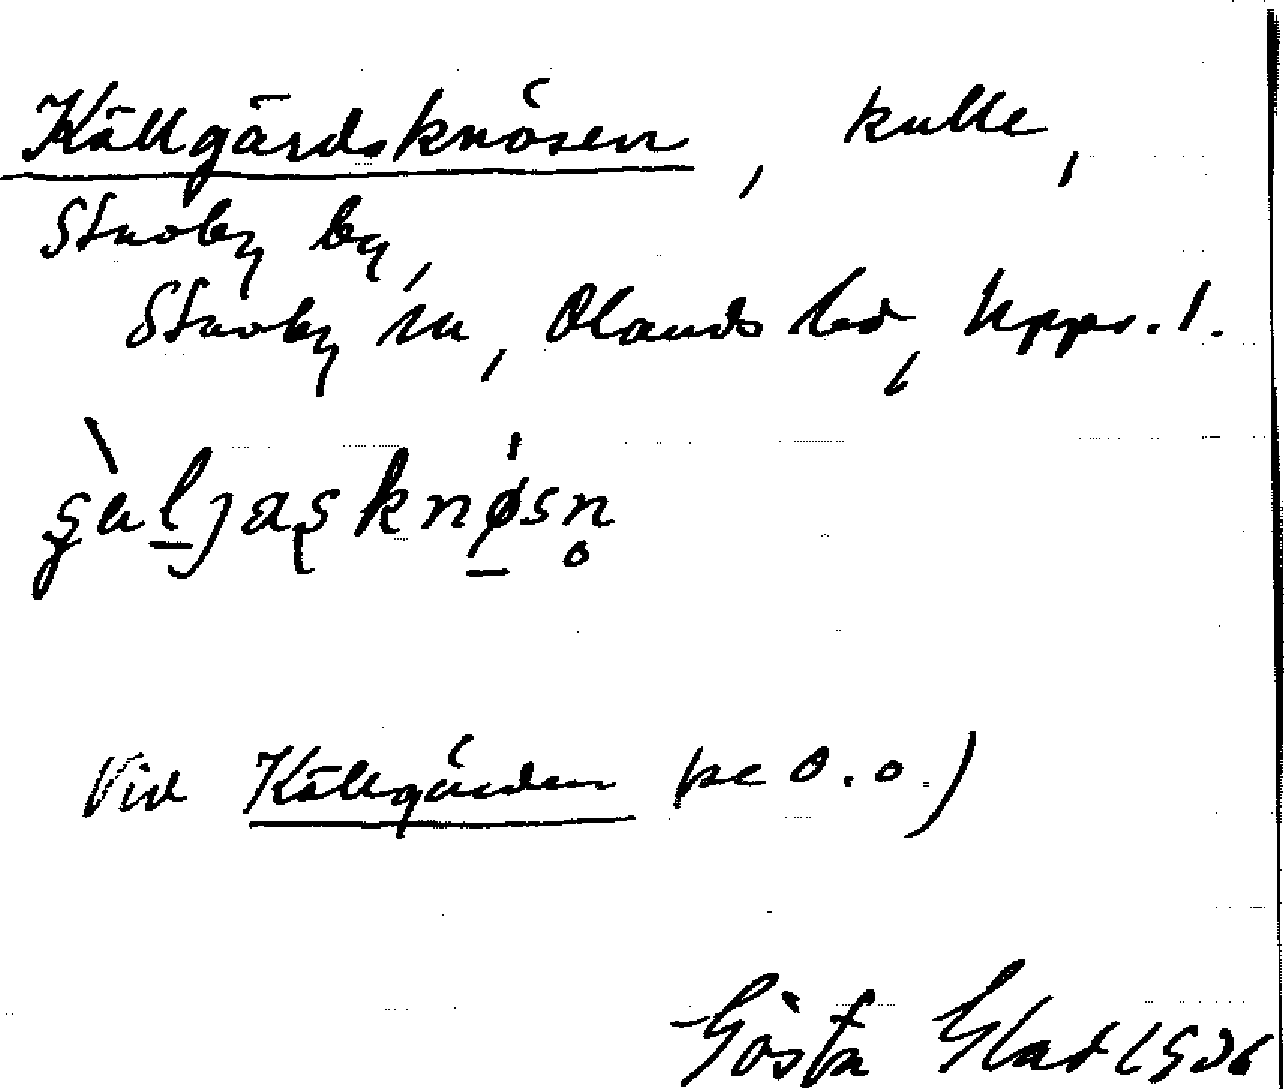 Källgårdsknösen, kulle,
Stavby by,
Stavby sn, Olands hd, Upps. l.
Vid Källgården (se d. o.)
Gösta Glad 1936